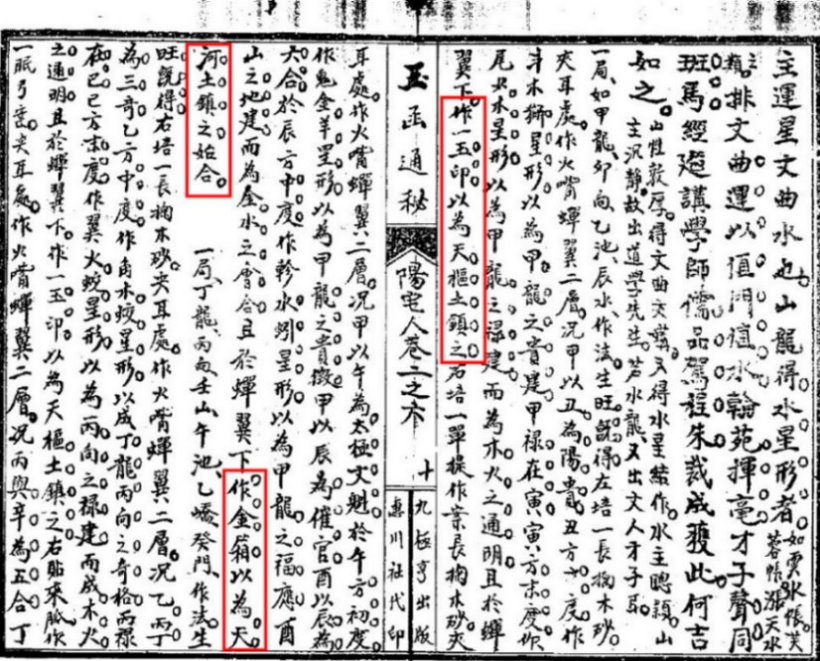 主運星文曲水也山龍得水星形者如雲水帳芙蓉帳漲天水
類排文曲運以值門值水翰苑揮毫才子聲同
班馬經筵講學師儒品駕程朱裁成獲此何吉
如之山性敦厚得文曲文〇又得水星結作水主聰穎山主沉靜故出道學先生若水龍又出文人才子局
一局如甲龍卯向乙池辰水作法生旺既得左培一長掬木砂
夾耳處作火嘴蟬翼二層況甲以丑為陽貴丑方中度作
斗木獬星形以為甲龍之貴建甲祿在寅寅方末度作
尾火水星形以為甲龍之祿建而為木火之通明且於蟬
翼下作一玉印以為天樞土鎮之右培一單提作案長掬木砂夾
玉函通秘
陽宅人卷二之本
十
九極亨出版
惠川社代印
耳處作火嘴蟬翼二層況甲以午為太極文魁於午方初度
作鬼金羊星形以為甲龍之貴徵甲以辰為催官酉以辰為
六合於辰方中度作軫水蚓星形以為甲龍之福應酉
山之地建而為金水之會合且於蟬翼下作金箱以為天
河土鎮之始合
一局丁龍丙向壬山午池乙嶠癸門作法生
旺既得右培一長掬木砂夾耳處作火嘴蟬翼二層況乙丙丁
為三奇乙方中度作角木蛟星形以成丁龍丙向之奇格丙祿
在巳巳方末度作翼火蛇星形以為丙向之祿建而成木火
之通明且於蟬翼下作一玉印以為天樞土鎮之右貼來脈作
一眠弓峦夾耳處作火嘴蟬翼二層況丙與辛為五合丁